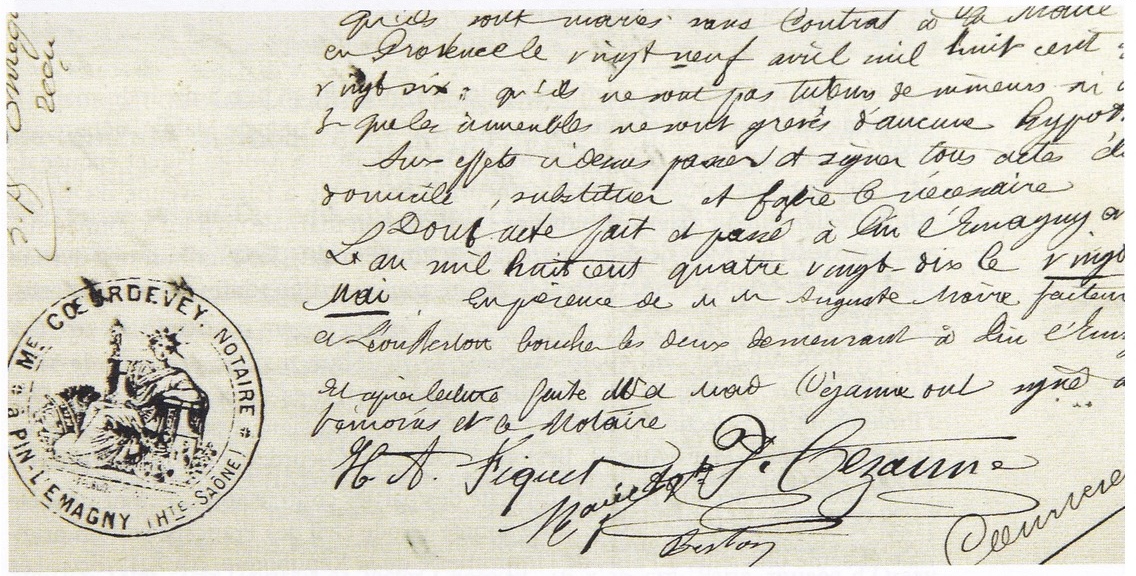 qu'ils sont mariés sans Contrat à la Mairie
en Provence le vingt neuf avril mil huit cent
vingt six ; qu'ils ne sont pas tuteurs de mineurs ni
& que les immeubles ne sont grevés d'aucune hypot
Aux effets ci dessus passer et signer tous actes
domicile, substituer et faire le nécessaire
Dont acte fait et passé à Pin l'Emagny
L'an mil huit cent quatre vingt-dix le vingt
Mai En présence de MM Auguste facteur
et Léon Perston boucher les deux demeurant à Pin l'Emag
Et après lecture faite M et Mad Cézanne ont signé
témoins et le Notaire
H A. Fiquet P. Cezanne
Perston
Coeurdevey
ME COEURDEVEY, NOTAIRE
à PIN-L'EMAGNY (HTE SAÔNE)
Enreg
reçu